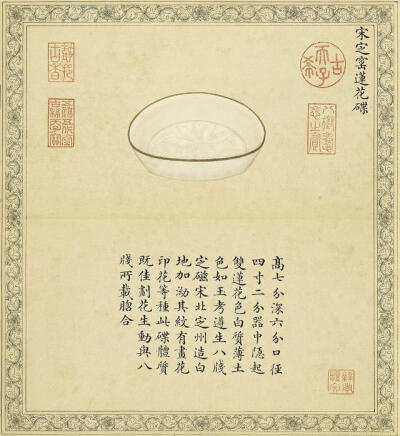 宋定窑蓮花碟
古希天子
八徵耄念之寶
高七分深六分口徑
四寸二分器中隱起
雙蓮花色白質薄土
色如玉考遵生八牋
定磁宋北定州造白
地加泑其紋有畫花
印花等種此碟體質
既佳劃花生動與八
牋所載脗合